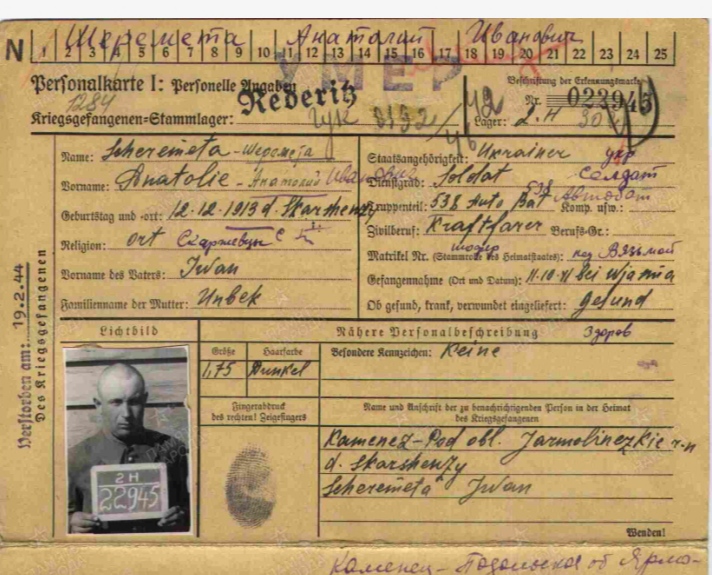 Шеремета Анатолий Иванович
N 1 2 3 4 5 6 7 8 9 10 11 12 13 14 15 16 17 18 19 20 21 22 23 24 25
УМЕР
Personalkarte I: Personelle Angaben
Beschriftung der Erkennungsmarke
1284
Nr. 022945
Kriegsgefangenen-Stammlager:
Lager: 2.H
Name: Scheremeta - Шеремета
Staatsangehörigkeit: Ukrainer укр
Vorname: Anatolie - Анатолий Иванович
Dienstgrad: Soldat солдат
Truppenteil: 538 Auto Bat Komp. usw.: 538 Автобат
Geburtstag und -ort: 12.12.1913 d. Skarshenzy
Zivilberuf: Kraftfarer Berufs-Gr.:
шофер
Religion: ort
Matrikel Nr. (Stammrolle des Heimatstaates): под Вязьмой
Vorname des Vaters: Iwan
Gefangennahme (Ort und Datum): 11.10.41 bei Wjasma
Familienname der Mutter: Unbek
Ob gesund, krank, verwundet eingeliefert: gesund
здоров
Verstorben am: 19.2.44
Des Kriegsgefangenen
Lichtbild
Nähere Personalbeschreibung
Größe Haarfarbe
Besondere Kennzeichen: Keine
1,75 Dunkel
Fingerabdruck
des rechten! Zeigefingers
Name und Anschrift der zu benachrichtigenden Person in der Heimat
des Kriegsgefangenen
Kamenez-Pod obl. Jarmolinezkie r-n
d. Skarshenzy
Scheremeta Iwan
2H
22945
Wenden!
Каменец-Подольская об Ярмо-